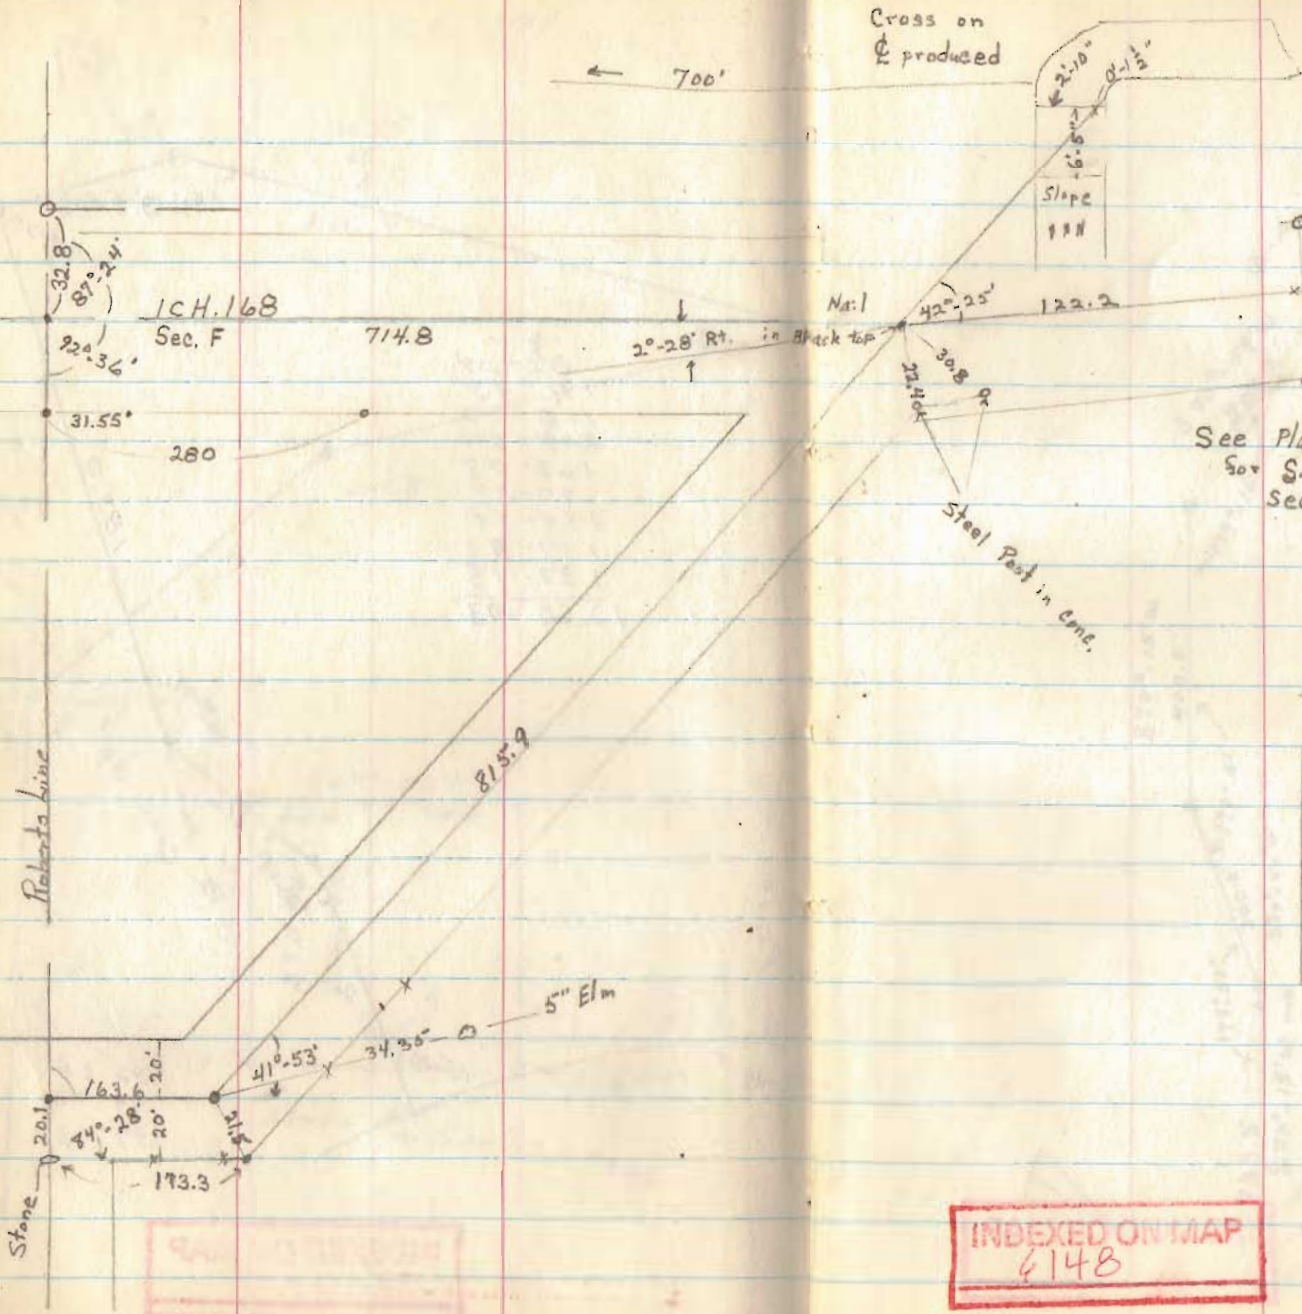 Cross on
℄ produced
← 700'
2'-10"
0'-1½"
6'-5"
Slope
32.8
87°-24'
ICH.168
Sec. F
714.8
92°-36'
2°-28' Rt.
Nail
in Black top
42°-25'
122.2
30.8
22.40
31.55'
280
See
for
Sec
Steel Post in conc.
815.9
Roberts Line
5" Elm
34.35
41°-53'
163.6
20'
20.1
84°-28.5
20'
21.5
173.3
Stone
INDEXED ON MAP
6148